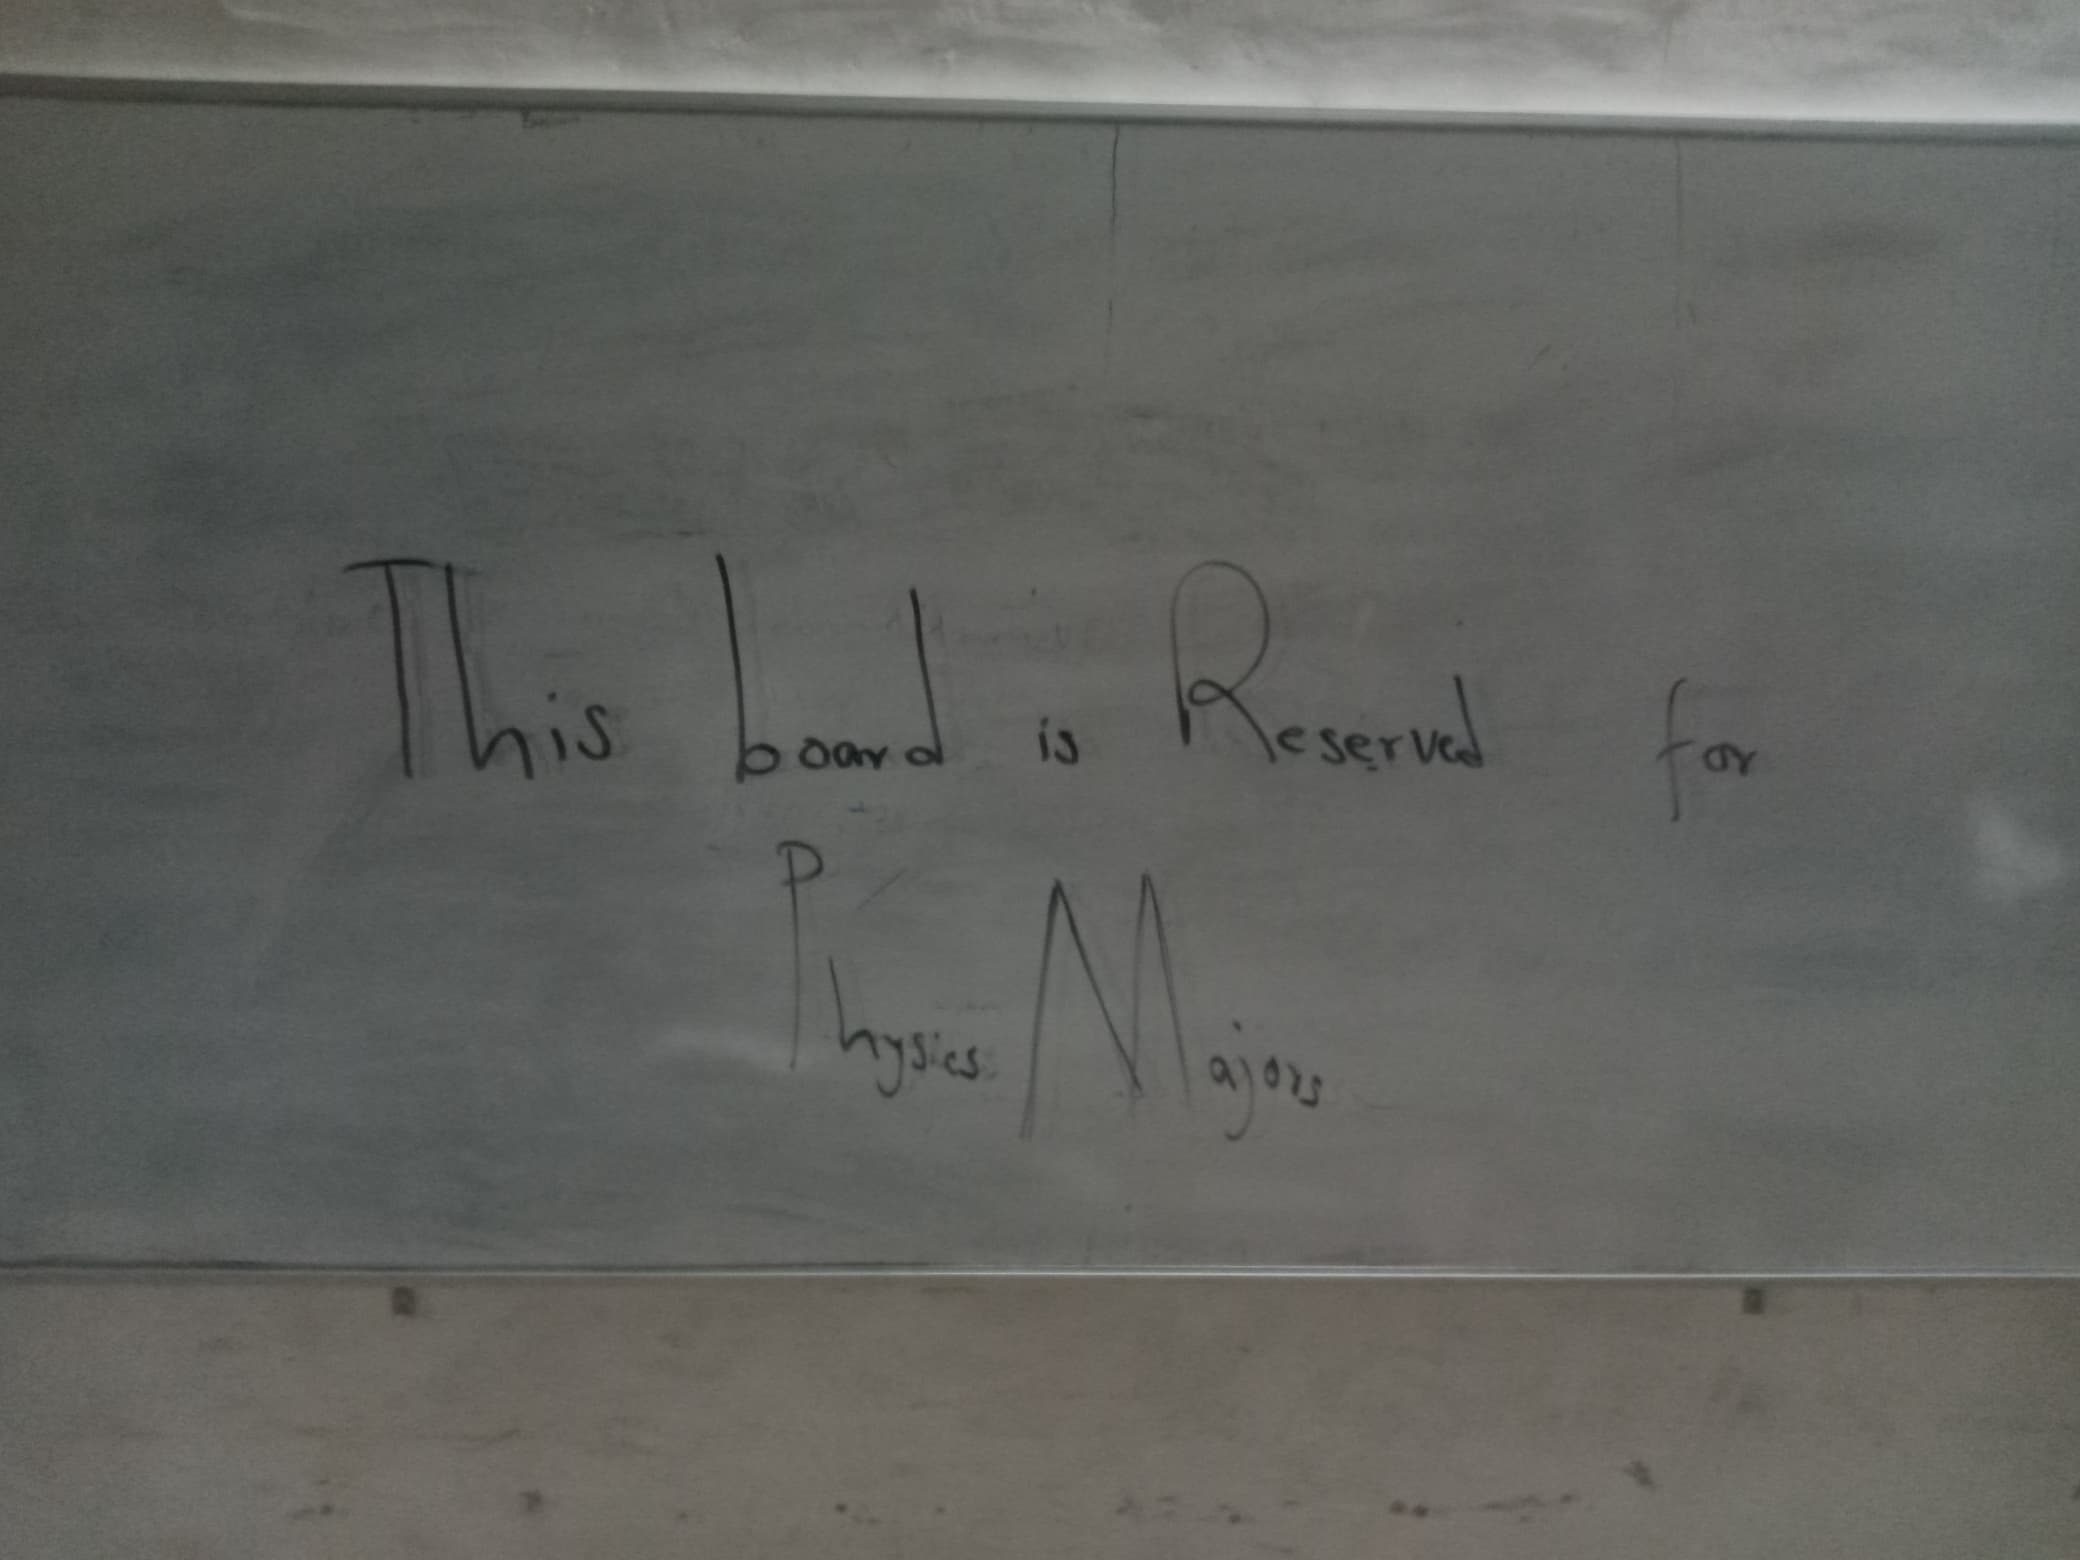 This board is Reserved for
Physics Majors